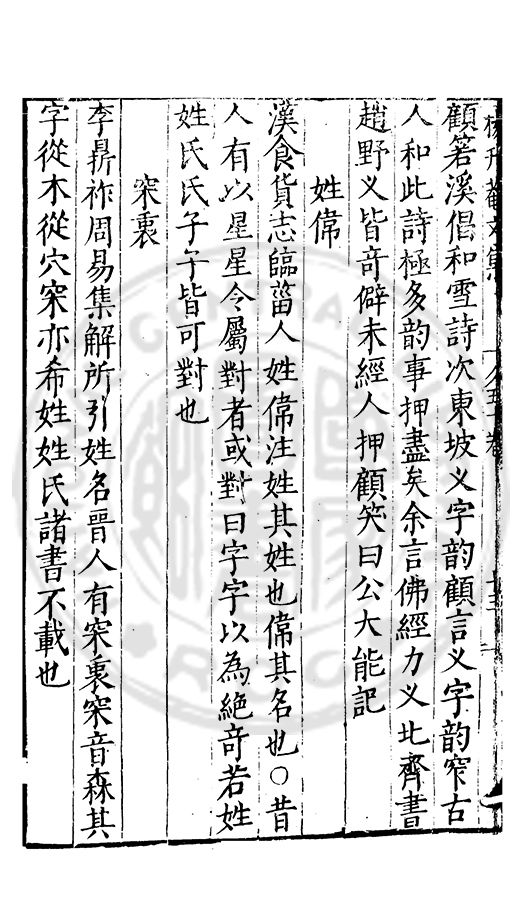 顧箬溪倡和雪詩次東坡义字韵顧言义字韵窄古
人和此詩極多韵事押盡矣余言佛經力义北齊書
趙野义皆奇僻未經人押顧笑曰公大能記
姓偉
漢食貨志臨菑人姓偉注姓其姓也偉其名也○昔
人有以星星令屬對者或對曰字字以為絶奇若姓
姓氏氏子午皆可對也
罙裏
李鼎祚周易集解所引姓名晉人有罙裏罙音森其
字從木從穴罙亦希姓姓氏諸書不載也